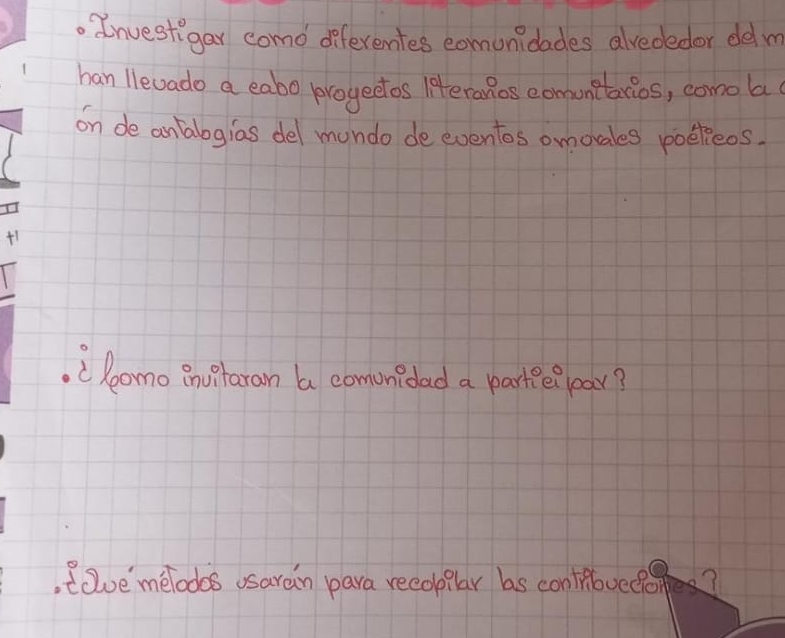 • Investigar como diferentes comunidades alrededor del m
han llevado a cabo proyectos literarios comunitarios, como la c
ón de antalogías del mundo de eventos omorales poéticos.
• ¿Como invitaran la comunidad a participar?
• ¿Qué métodos usarán para recopilar las contribueciones?